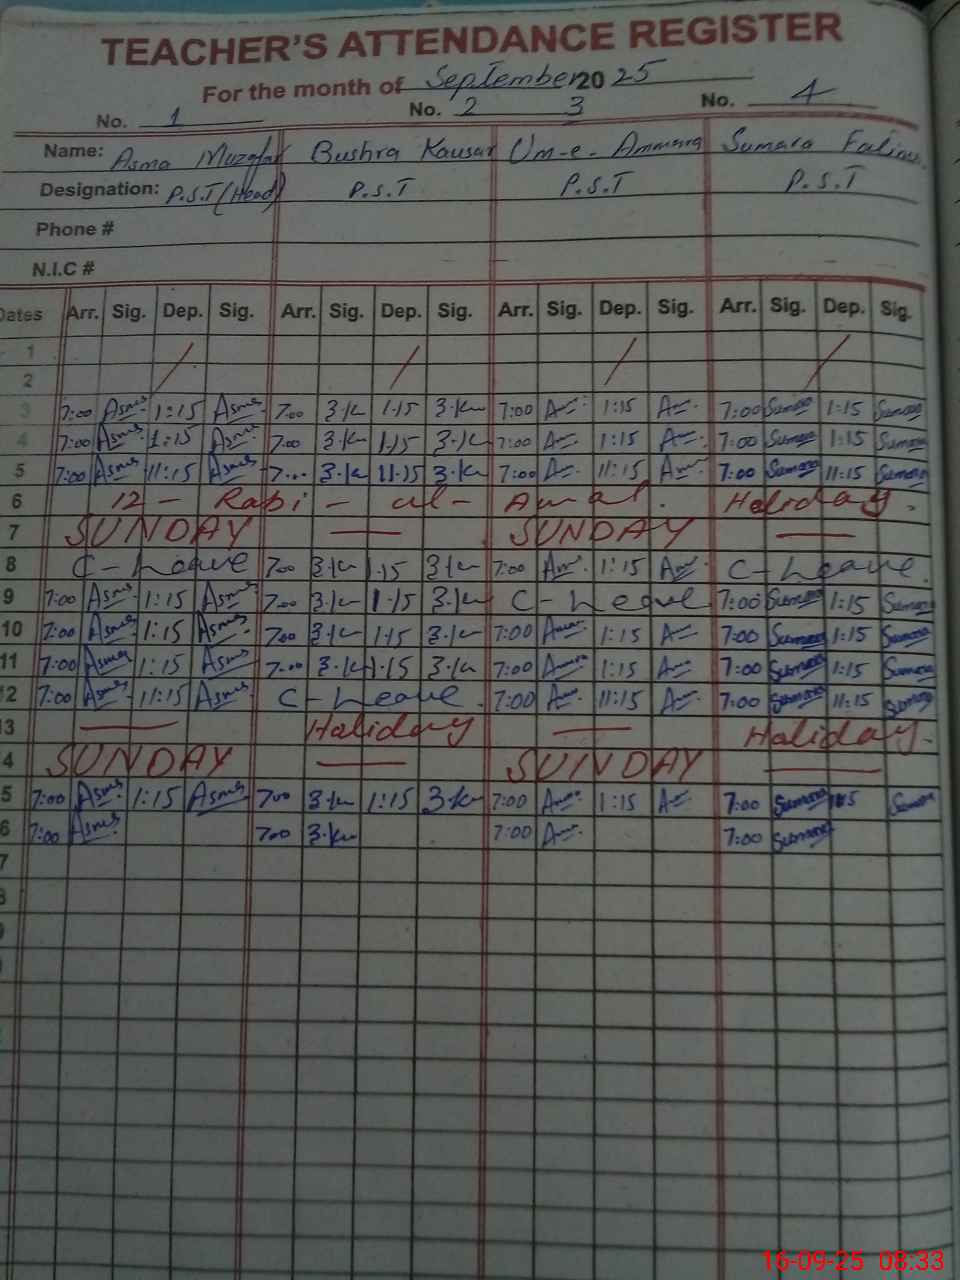 TEACHER'S ATTENDANCE REGISTER
For the month of September 2025
No. 1 No. 2 3 No. 4
Name: Asma Muzafar Bushra Kausar Um-e-Ammara Sumara
Designation: P.S.T (Head) P.S.T P.S.T P.S.T
Phone #
N.I.C #
Dates Arr. Sig. Dep. Sig. Arr. Sig. Dep. Sig. Arr. Sig. Dep. Sig. Arr. Sig. Dep. Sig.
1
2
3 7:00 Asma 1:15 Asma 7.00 3.Ku 1.15 3.Ku 7:00 Am. 1:15 Am. 7:00 Sumara 1:15 Sumara
4 7:00 Asma 1:15 Asma 7.00 3.Ku 1.15 3.Ku 7:00 Am. 1:15 Am. 7:00 Sumara 1:15 Sumara
5 7:00 Asma 11:15 Asma 7... 3.Ku 11.15 3.Ku 7:00 Am. 11:15 Am. 7:00 Sumara 11:15 Sumara
6 12 - Rabi - ul - Awal. Holiday.
7 SUNDAY — SUNDAY —
8 C-Leave 700 3.Ku 1.15 3.Ku 7:00 Am. 1:15 Am. C-Leave.
9 7:00 Asma 1:15 Asma 7.00 3.Ku 1.15 3.Ku C-Leave 7:00 Sumara 1:15 Sumara
10 7:00 Asma 1:15 Asma 700 3.Ku 1.15 3.Ku 7:00 Am. 1:15 Am. 7:00 Sumara 1:15 Sumara
11 7:00 Asma 1:15 Asma 7.00 3.Ku 1.15 3.Ku 7:00 Am. 1:15 Am. 7:00 Sumara 1:15 Sumara
12 7:00 Asma 11:15 Asma C-Leave. 7:00 Am. 11:15 Am. 7:00 Sumara 11:15 Sumara
13 — Holiday — Holiday.
4 SUNDAY — SUNDAY —
5 7:00 Asma 1:15 Asma 700 3.Ku 1:15 3.Ku 7:00 Am. 1:15 Am. 7:00 Sumara Sumara
6 7:00 Asma 700 3.Ku 7:00 Am. 7:00 Sumara
7
8
16-09-25 08:33